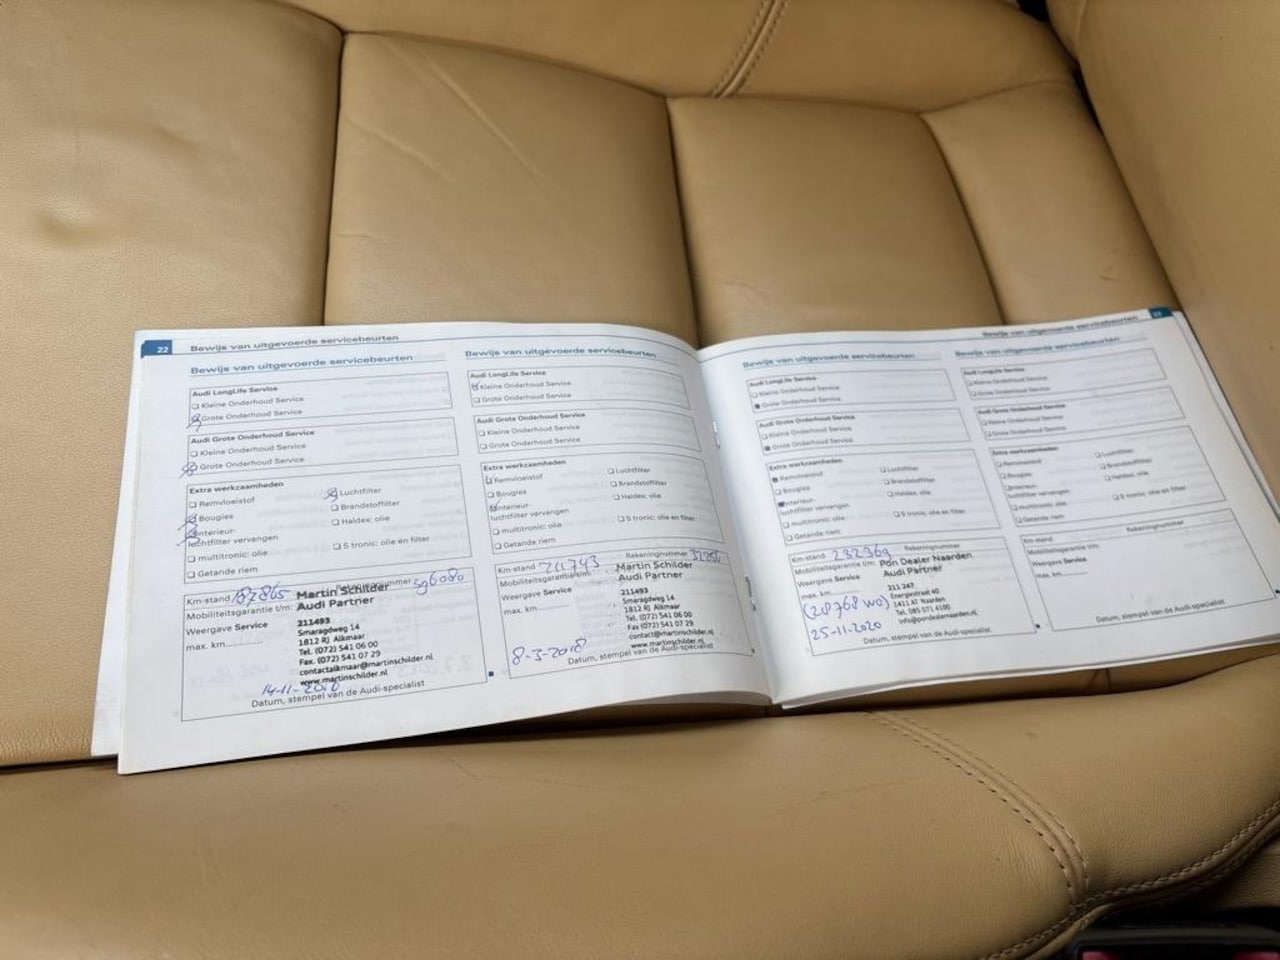 22
Bewijs van uitgevoerde servicebeurten
Bewijs van uitgevoerde servicebeurten
Audi LongLife Service
Kleine Onderhoud Service
Grote Onderhoud Service
Audi Grote Onderhoud Service
Kleine Onderhoud Service
Grote Onderhoud Service
Extra werkzaamheden
Remvloeistof
Luchtfilter
Bougies
Brandstoffilter
Interieur-
luchtfilter vervangen
Haldex: olie
multitronic: olie
S tronic: olie en filter
Getande riem
Km-stand 182865 Rekeningnummer
Mobiliteitsgarantie t/m:
Weergave Service
max. km
Martin Schilder
Audi Partner
211493
Smaragdweg 14
1812 RJ Alkmaar
Tel. (072) 541 06 00
Fax. (072) 541 07 29
contactalkmaar@martinschilder.nl
www.martinschilder.nl
Datum, stempel van de Audi-specialist
Bewijs van uitgevoerde servicebeurten
Audi LongLife Service
Kleine Onderhoud Service
Grote Onderhoud Service
Audi Grote Onderhoud Service
Kleine Onderhoud Service
Grote Onderhoud Service
Extra werkzaamheden
Remvloeistof
Luchtfilter
Bougies
Brandstoffilter
Interieur-
luchtfilter vervangen
Haldex: olie
multitronic: olie
S tronic: olie en filter
Getande riem
Km-stand 211743 Rekeningnummer
Mobiliteitsgarantie t/m:
Weergave Service
max. km
Martin Schilder
Audi Partner
211493
Smaragdweg 14
1812 RJ Alkmaar
Tel. (072) 541 06 00
Fax (072) 541 07 29
contact@martinschilder.nl
www.martinschilder.nl
8-3-2018
Datum, stempel van de Audi-specialist
Bewijs van uitgevoerde servicebeurten
Bewijs van uitgevoerde servicebeurten
Audi LongLife Service
Kleine Onderhoud Service
Grote Onderhoud Service
Audi Grote Onderhoud Service
Kleine Onderhoud Service
Grote Onderhoud Service
Extra werkzaamheden
Remvloeistof
Luchtfilter
Bougies
Brandstoffilter
Interieur-
luchtfilter vervangen
Haldex: olie
multitronic: olie
S tronic: olie en filter
Getande riem
Km-stand 232369 Rekeningnummer
Mobiliteitsgarantie t/m:
Weergave Service
max. km
Pon Dealer Naarden
Audi Partner
211 247
Energiestraat 40
1411 AT Naarden
info@pondealernaarden.nl
25-11-2020
Datum, stempel van de Audi-specialist
Bewijs van uitgevoerde servicebeurten
Audi LongLife Service
Kleine Onderhoud Service
Grote Onderhoud Service
Audi Grote Onderhoud Service
Kleine Onderhoud Service
Grote Onderhoud Service
Extra werkzaamheden
Remvloeistof
Luchtfilter
Bougies
Brandstoffilter
Interieur-
luchtfilter vervangen
Haldex: olie
multitronic: olie
S tronic: olie en filter
Getande riem
Km-stand
Rekeningnummer
Mobiliteitsgarantie t/m:
Weergave Service
max. km
Datum, stempel van de Audi-specialist